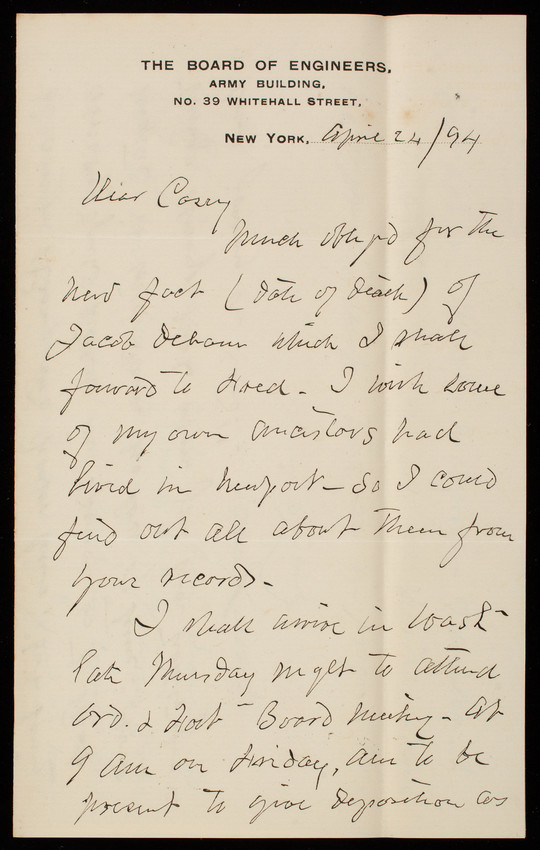 THE BOARD OF ENGINEERS,
ARMY BUILDING,
NO. 39 WHITEHALL STREET,
NEW YORK, April 24/94
Dear Casey
Much oblg'd for the
new fact (date of death) of
Jacob which I shall
forward to Fred - I wish some
of my own ancestors had
lived in Newport - so I could
find out all about them from
your records -
I shall arrive in Wash
late Thursday night to attend
Ord. & Fort Board meeting - at
9 am on Friday, am to be
present to give deposition as